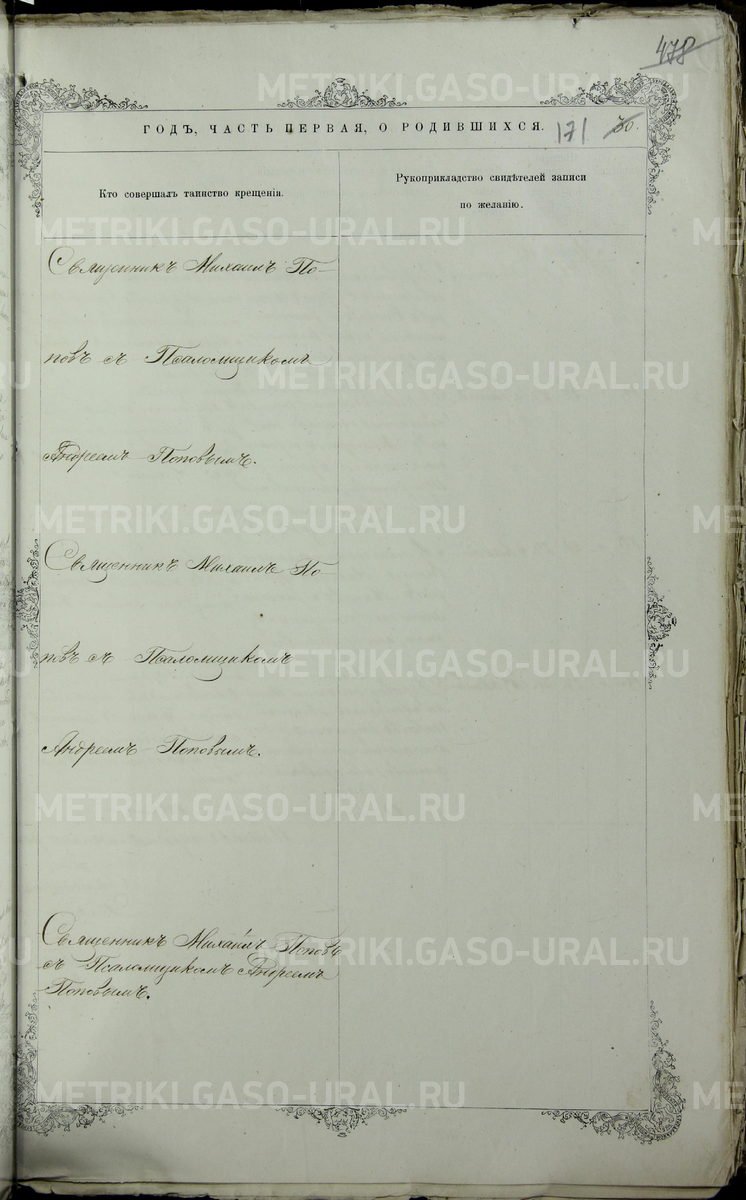 478
ГОДЪ, ЧАСТЬ ПЕРВАЯ, О РОДИВШИХСЯ. 171 30.
Кто совершалъ таинство крещенія.
Рукоприкладство свидѣтелей записи
по желанію.
Священникъ Михаилъ По-
повъ съ Псаломщикомъ
Андреемъ Поповымъ.
Священникъ Михаилъ По
повъ съ Псаломщикомъ
Андреемъ Поповымъ.
Священникъ Михаилъ Поповъ
съ Псаломщикомъ Андреемъ
Поповымъ.
METRIKI.GASO-URAL.RU